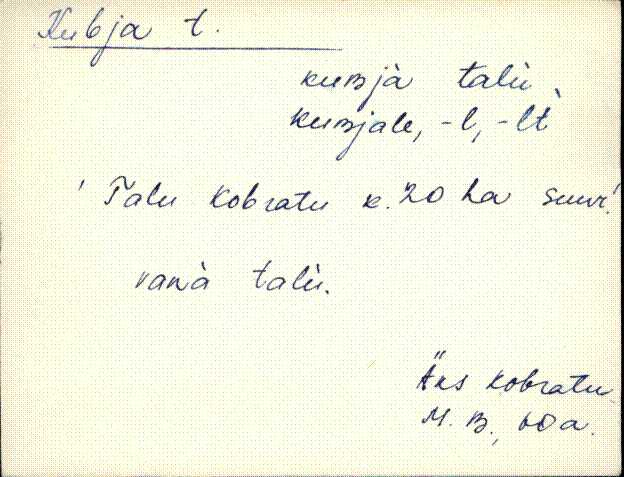 Kubja t.
kuʙjà talù
kuʙjale, -l, -lt
' Talu Kobratu k. 20 ha suur!
vanà talù.
Äks Kobratu
M. B., 60 a.